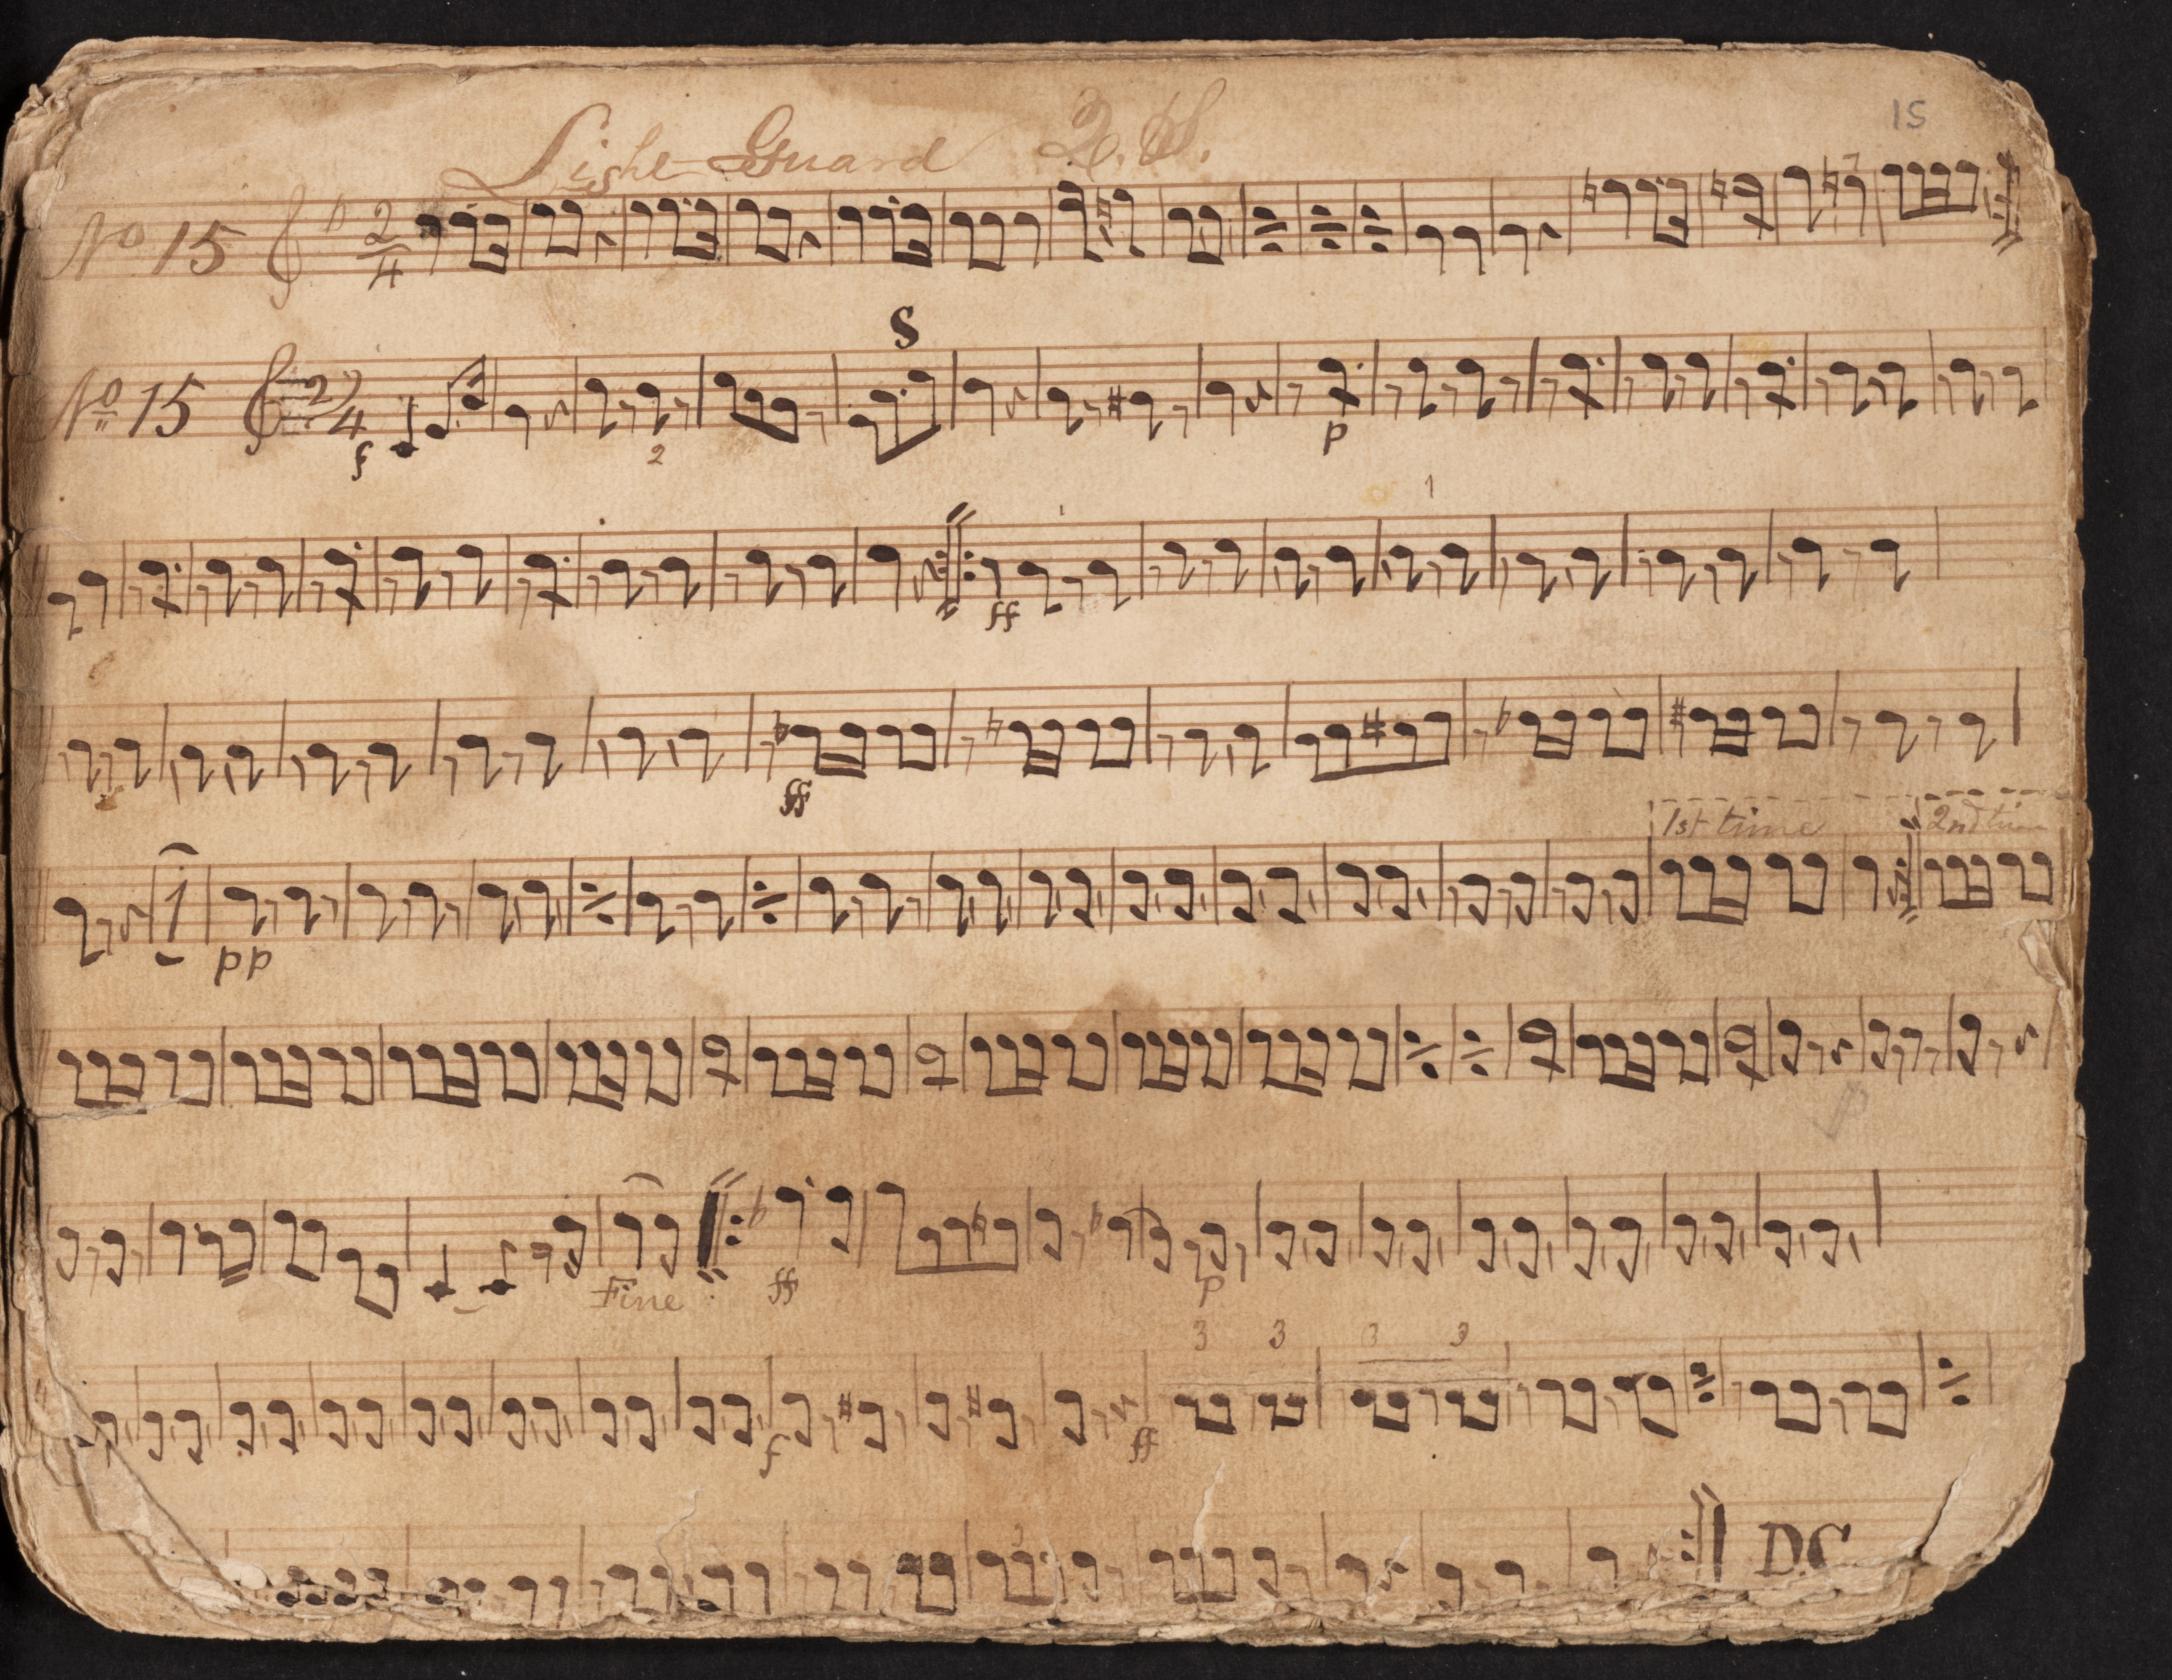 15
Light Guard Q. S.
No 15 2/4
S
No 15 2/4
f 2 p
1
ff
ff
1st time 2nd time
1
pp
p
Fine ff p
3 3 3 3
f ff
D.C